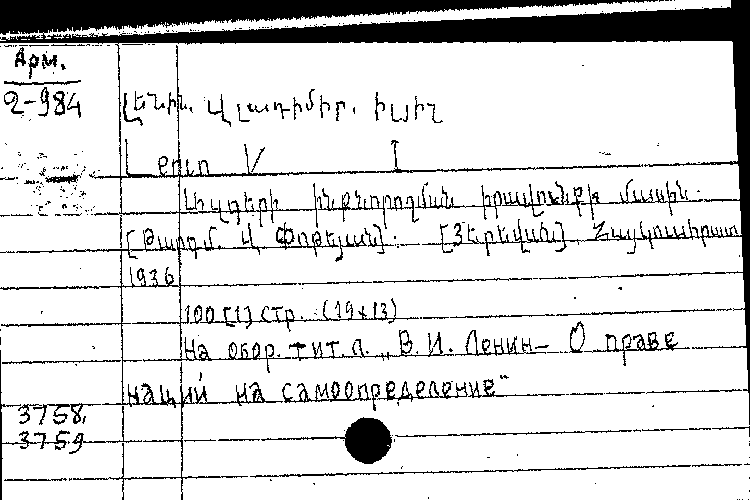 Арм.
2-984
Լենին. Վլադիմիր. Իլիչ
Lenin V I
Ազգերի ինքնորոշման իրավունքի մասին.
[Թարգմ. Վ. Փոթեյան]. [Յերեվան], Հայկուսհրատ
1936
100 [1] стр. (19x13)
На обор. тит. л. „В. И. Ленин – О праве
наций на самоопределение"
3758,
3759